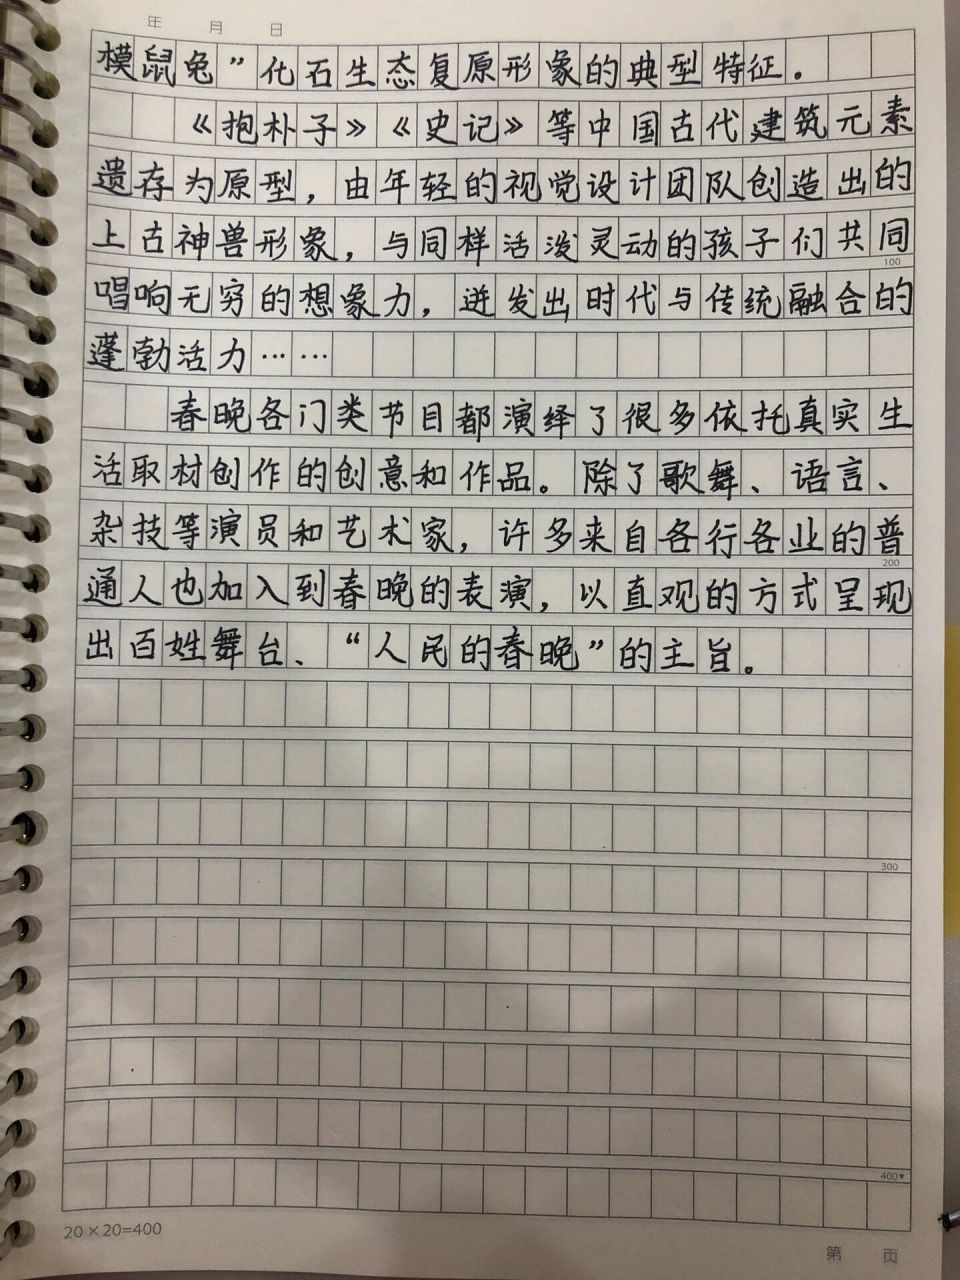 年 月 日
模鼠兔”化石生态复原形象的典型特征。
《抱朴子》《史记》等中国古代建筑元素
遗存为原型，由年轻的视觉设计团队创造出的
上古神兽形象，与同样活泼灵动的孩子们共同
100
唱响无穷的想象力，迸发出时代与传统融合的
蓬勃活力……
春晚各门类节目都演绎了很多依托真实生
活取材创作的创意和作品。除了歌舞、语言、
杂技等演员和艺术家，许多来自各行各业的普
200
通人也加入到春晚的表演，以直观的方式呈现
出百姓舞台、“人民的春晚”的主旨。
300
400▼
20×20=400
第 页